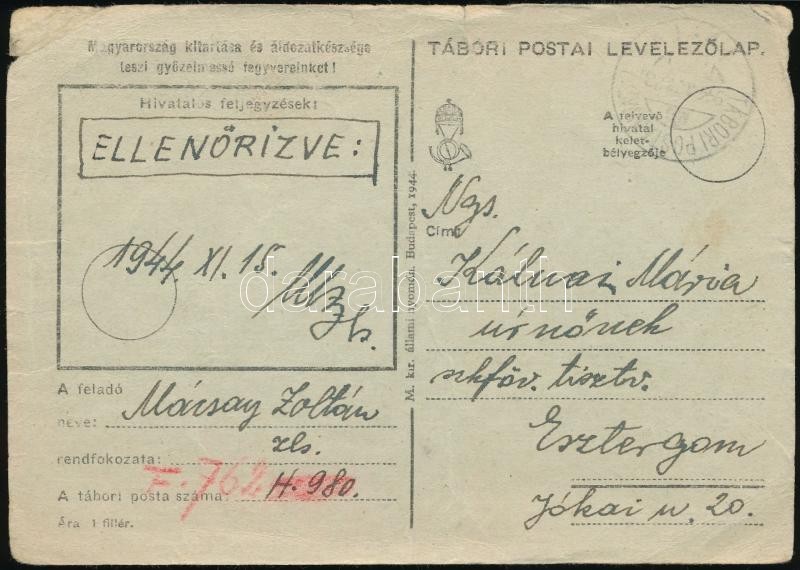 Magyarország kitartása és áldozatkészsége
teszi győzelmessé fegyvereinket!
Hivatalos feljegyzések:
ELLENŐRIZVE:
1944. XI. 15.
zls.
A feladó
neve: Mácsay Zoltán
rendfokozata: zls.
F. 762
A tábori posta száma: H. 980.
Ára 1 fillér.
M. kir. állami nyomda, Budapest, 1944.
TÁBORI POSTAI LEVELEZŐLAP.
TÁBORI POS
A felvevő
hivatal
kelet-
bélyegzője
Ngs.
Cím:
Kálnai Mária
úrnőnek
szkföv. tisztv.
Esztergom
Jókai u. 20.
darabanth